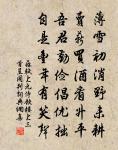 薄雪初消野未耕
賣薪買酒看升平
吾君勤儉倡優拙
自是豐年有笑聲
蘇軾上元侍飲樓上三
首呈同列詞典網集